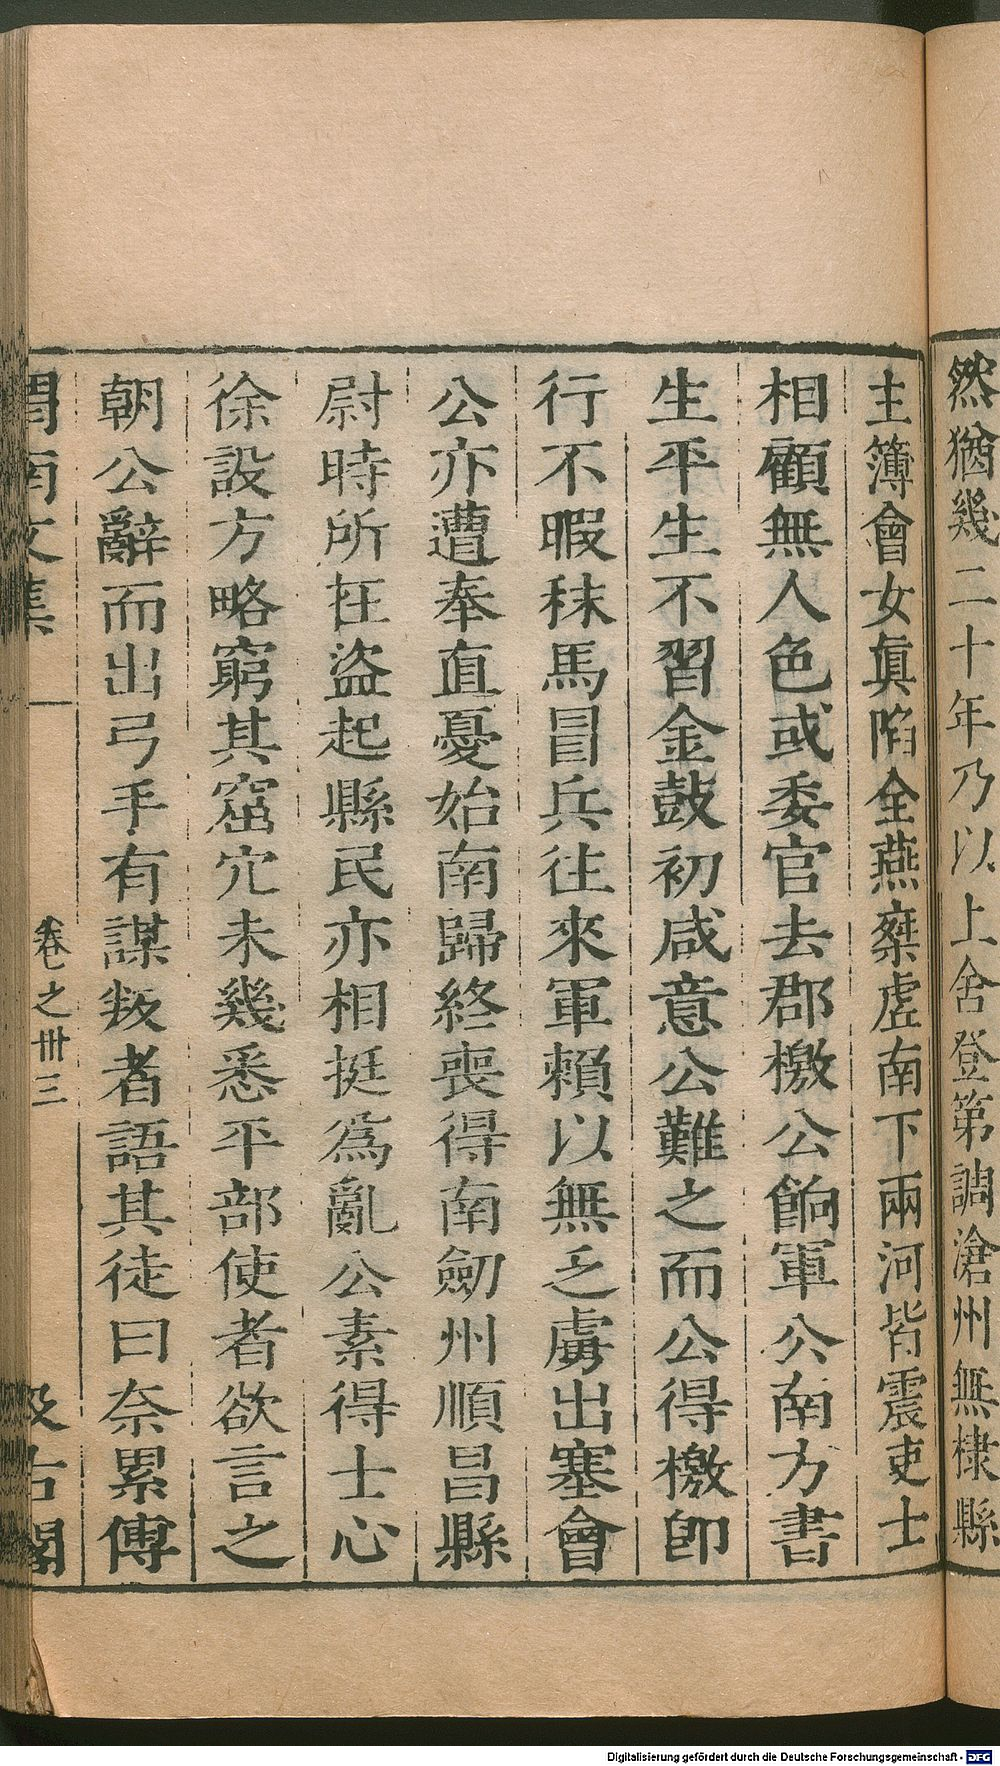 然猶幾二十年乃以上舍登第調滄州無棣縣
主簿會女眞陷全燕棄虗南下兩河皆震吏士
相顧無人色或委官去郡檄公餉軍公南方書
生平生不習金鼓初咸意公難之而公得檄卽
行不暇秣馬冒兵往來軍賴以無乏虜出塞會
公亦遭奉直憂始南歸終喪得南劒州順昌縣
尉時所在盜起縣民亦相挺爲亂公素得士心
徐設方略窮其窟穴未幾悉平部使者欲言之
朝公辭而出弓手有謀叛者語其徒曰奈累傅
渭南文集 卷之卅三 汲古閣
Digitalisierung gefördert durch die Deutsche Forschungsgemeinschaft - DFG